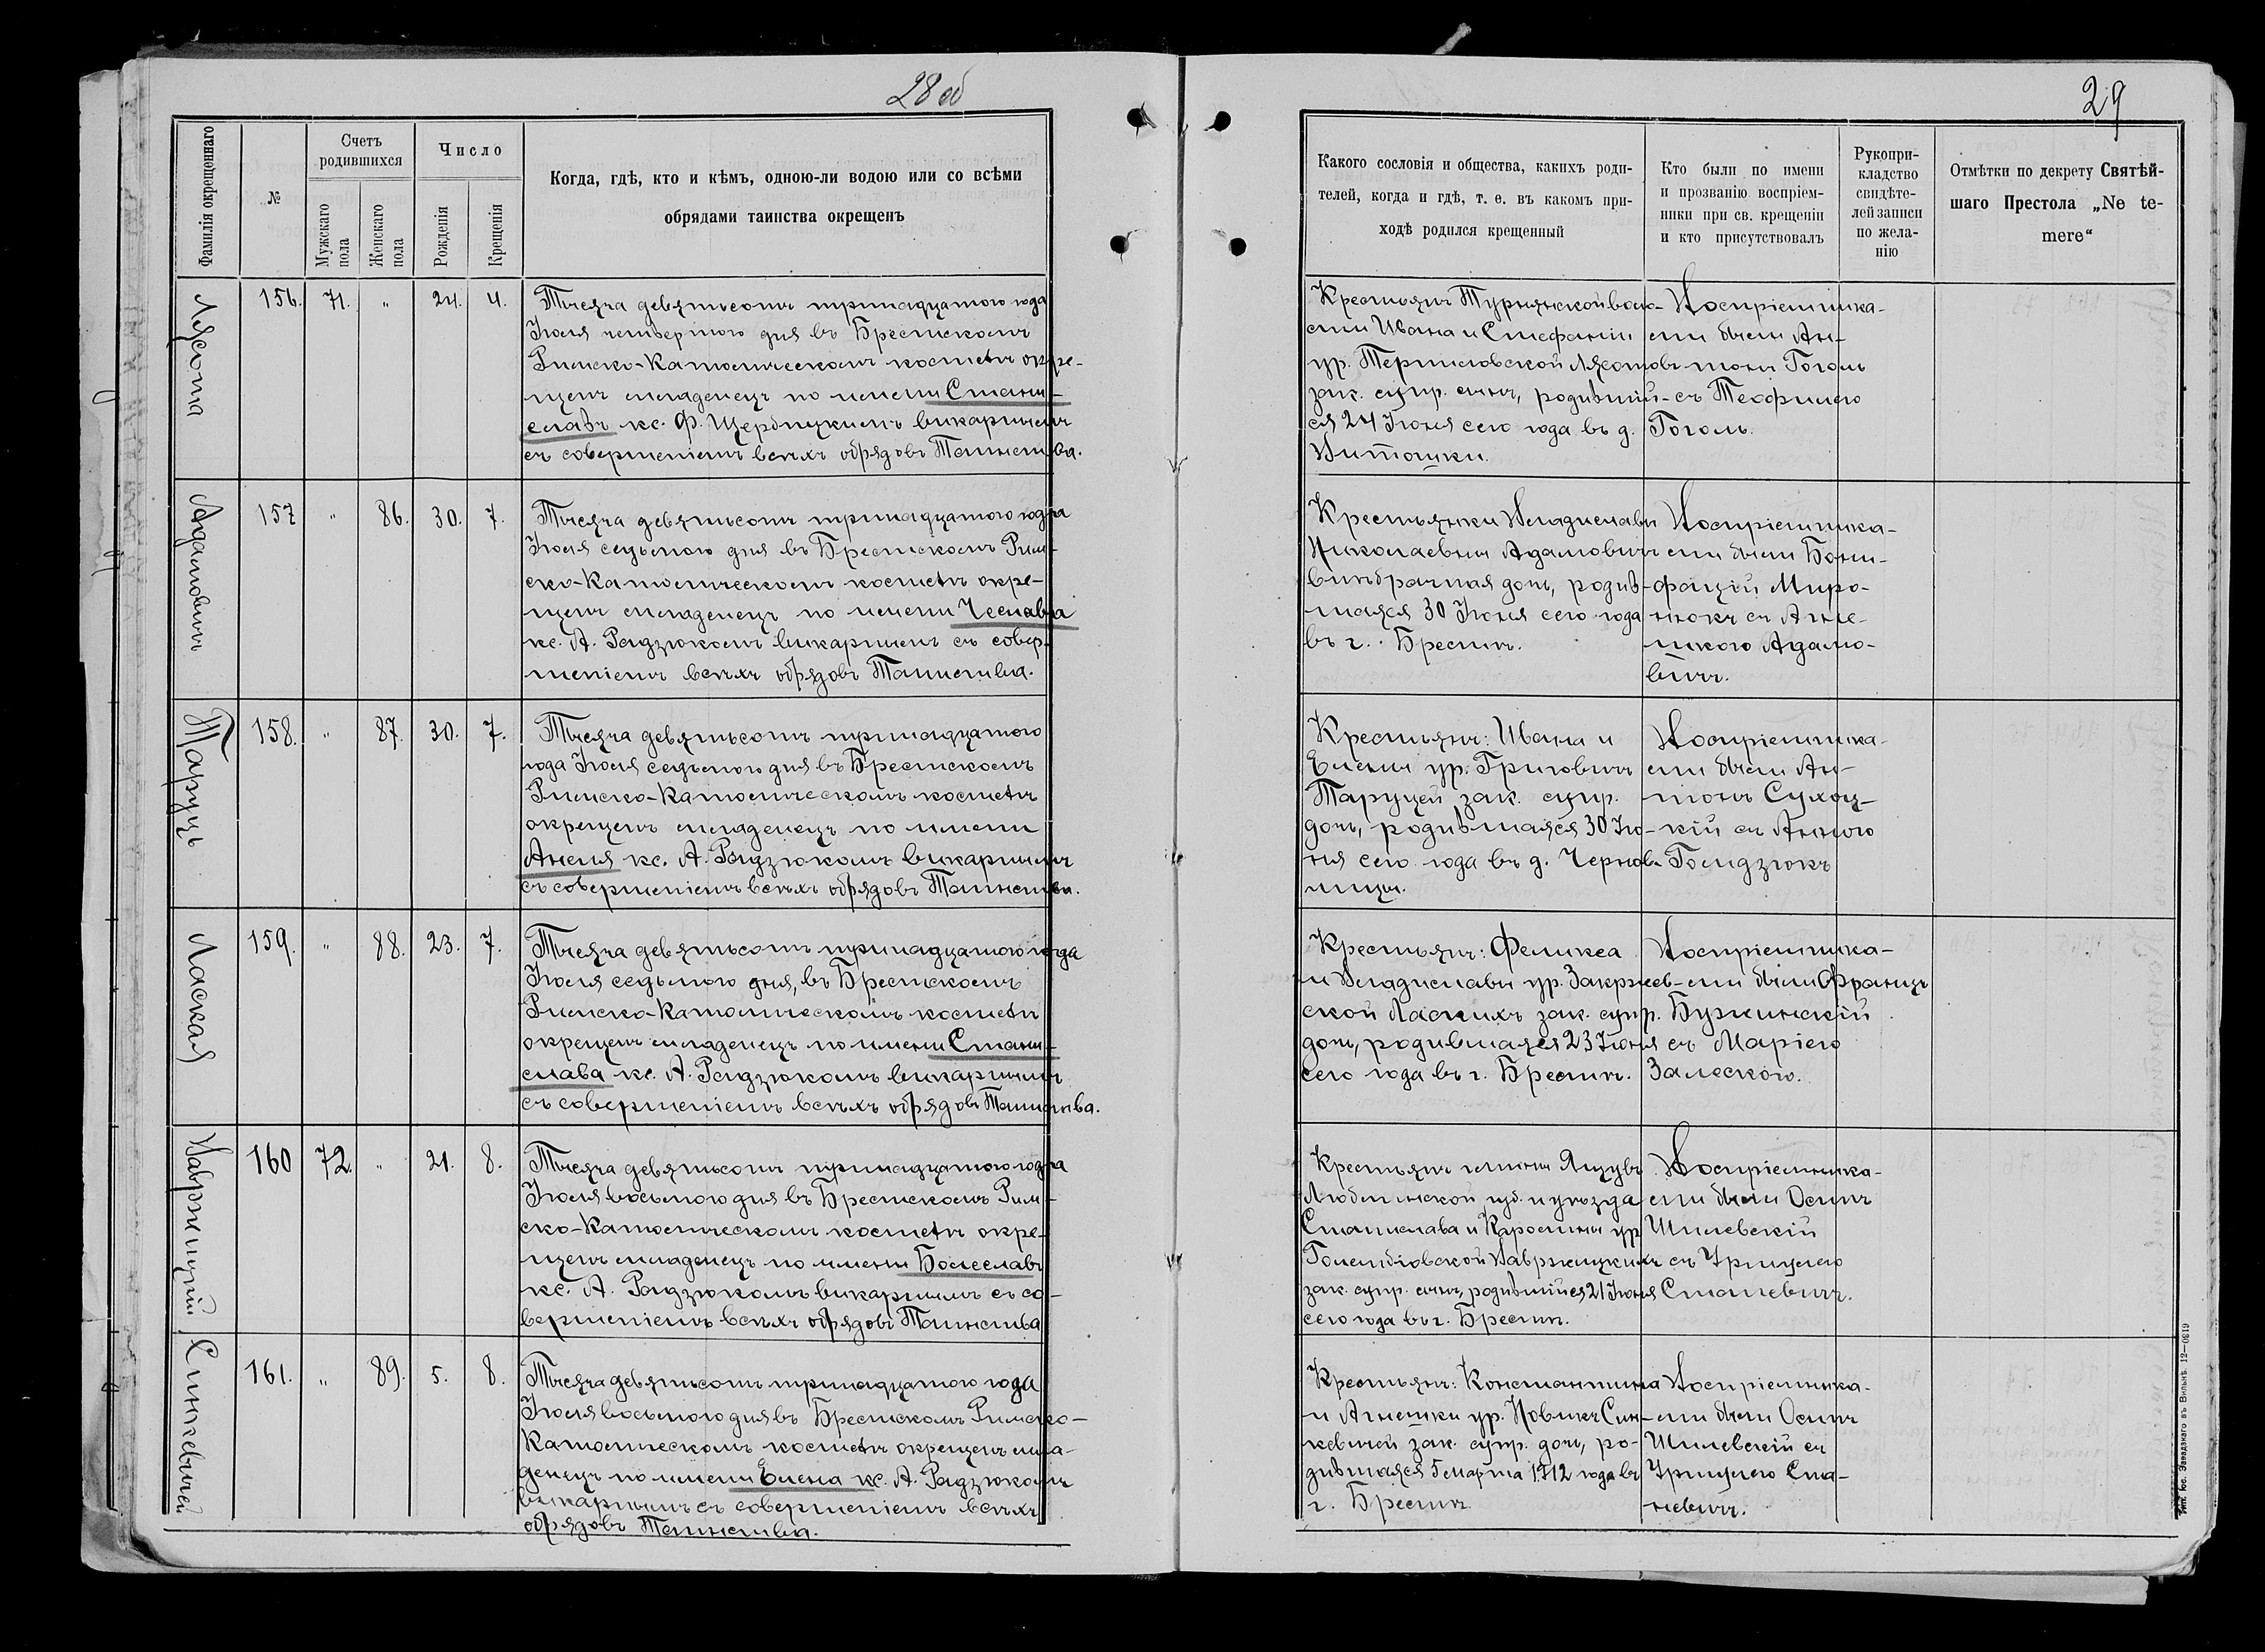 28 об
Фамилія окрещеннаго
№
Счетъ родившихся
Мужскаго пола
Женскаго пола
Число
Рожденія
Крещенія
Когда, гдѣ, кто и кѣмъ, одною-ли водою или со всѣми
обрядами таинства окрещенъ
Лясота
156. 71. " 24. 4.
Тысяча девятьсотъ тринадцатого года
Іюля четвертого дня въ Брестскомъ
Римско-Католическомъ костелѣ окре-
щенъ младенецъ по имени Стани-
славъ кс. Ф. Щербицкимъ викаріемъ
съ совершеніемъ всѣхъ обрядовъ Таинства.
Адамовичъ
157 " 86. 30. 7.
Тысяча девятьсотъ тринадцатого года
Іюля седьмого дня въ Брестскомъ Рим-
ско-Католическомъ костелѣ окре-
щенъ младенецъ по имени Чеслава
кс. А. Радзюкомъ викаріемъ съ совер-
шеніемъ всѣхъ обрядовъ Таинства.
Таруць
158. " 87. 30. 7.
Тысяча девятьсотъ тринадцатого
года Іюля седьмого дня въ Брестскомъ
Римско-Католическомъ костелѣ
окрещенъ младенецъ по имени
Анеля кс. А. Радзюкомъ викаріемъ
съ совершеніемъ всѣхъ обрядовъ Таинства.
Лаская
159. " 88. 23. 7.
Тысяча девятьсотъ тринадцатого года
Іюля седьмого дня, въ Брестскомъ
Римско-Католическомъ костелѣ
окрещенъ младенецъ по имени Стани-
слава кс. А. Радзюкомъ викаріемъ
съ совершеніемъ всѣхъ обрядовъ Таинства.
Навржицкій
160 72. " 21. 8.
Тысяча девятьсотъ тринадцатого года
Іюля восьмого дня въ Брестскомъ Рим-
ско-Католическомъ костелѣ окре-
щенъ младенецъ по имени Болеславъ
кс. А. Радзюкомъ викаріемъ съ со-
вершеніемъ всѣхъ обрядовъ Таинства
Синкевичей
161. " 89. 5. 8.
Тысяча девятьсотъ тринадцатого года
Іюля восьмого дня въ Брестскомъ Римско-
Католическомъ костелѣ окрещенъ мла-
денецъ по имени Елена кс. А. Радзюкомъ
викаріемъ съ совершеніемъ всѣхъ
обрядовъ Таинства.
29
Какого сословія и общества, какихъ роди-
телей, когда и гдѣ, т. е. въ какомъ при-
ходѣ родился крещенный
Кто были по имени
и прозванію воспріем-
ники при св. крещеніи
и кто присутствовалъ
Рукопри-
кладство
свидѣте-
лей записи
по жела-
нію
Отмѣтки по декрету Святѣй-
шаго Престола „Ne te-
mere“
Крестьянъ Турнянской воло-
сти Ивана и Стефаніи
ур. Терпиловской Лясотовъ
зак. супр. сынъ, родивший-
ся 24 Іюня сего года въ д.
Витошки.
Воспріемника-
ми были Ан-
тонъ Гоголь
съ Теофилею
Гоголь.
Крестьянки Владиславы
Николаевны Адамовичъ
внѣбрачная дочь, родив-
шаяся 30 Іюня сего года
въ г. Брестѣ.
Воспріемника-
ми были Бони-
фацій Миро-
нюкъ съ Агне-
шкою Адамо-
вичъ.
Крестьянъ: Ивана и
Елены ур. Григовичъ
Таруцей зак. супр.
дочь, родившаяся 30 Ію-
ня сего года въ д. Чернов-
чицы.
Воспріемника-
ми были Ан-
тонъ Сухоц-
кій съ Анною
Голидзюкъ
Крестьянъ: Феликса
и Владиславы ур. Закржев-
ской Ласкихъ зак. супр.
дочь, родившаяся 23 Іюня
сего года въ г. Брестѣ.
Воспріемника-
ми были Францъ
Бужинскій
съ Маріею
Залеской.
Крестьянъ гмины Ящувъ
Люблинской губ. и уѣзда
Станислава и Каролины ур.
Голембіовской Навржицкихъ
зак. супр. сынъ, родившійся 21 Іюня
сего года въ г. Брестѣ.
Воспріемника-
ми были Осипъ
Шилевскій
съ Уршулею
Станевичъ.
Крестьянъ: Константина
и Агнешки ур. Новикъ Син-
кевичей зак. супр. дочь, ро-
дившаяся 5 марта 1912 года въ
г. Брестѣ
Воспріемника-
ми были Осипъ
Шилевскій съ
Уршулею Ста-
невичъ.
Тип. Іос. Завадзкаго въ Вильнѣ. 12—0619